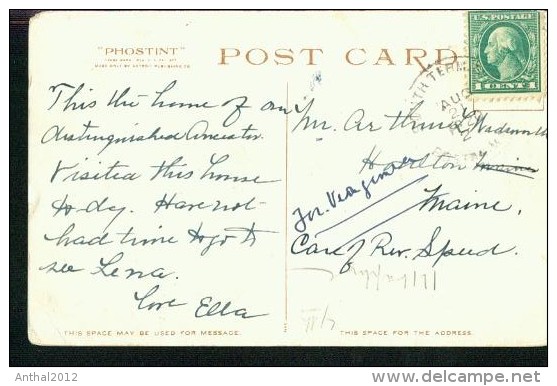 "PHOSTINT"
POST CARD
U.S. POSTAGE
1 CENT 1
This the home of our
distinguished Ancestor.
Visited this house
to-dy. Have not
had time to go to
see Lena.
Love Ella
Mr. Arthur Wadsworth
Houlton Maine
Maine.
Care of Rev. Speed.
AUG
THIS SPACE MAY BE USED FOR MESSAGE.
THIS SPACE FOR THE ADDRESS.
Anthal2012
http://www.delcampe.net